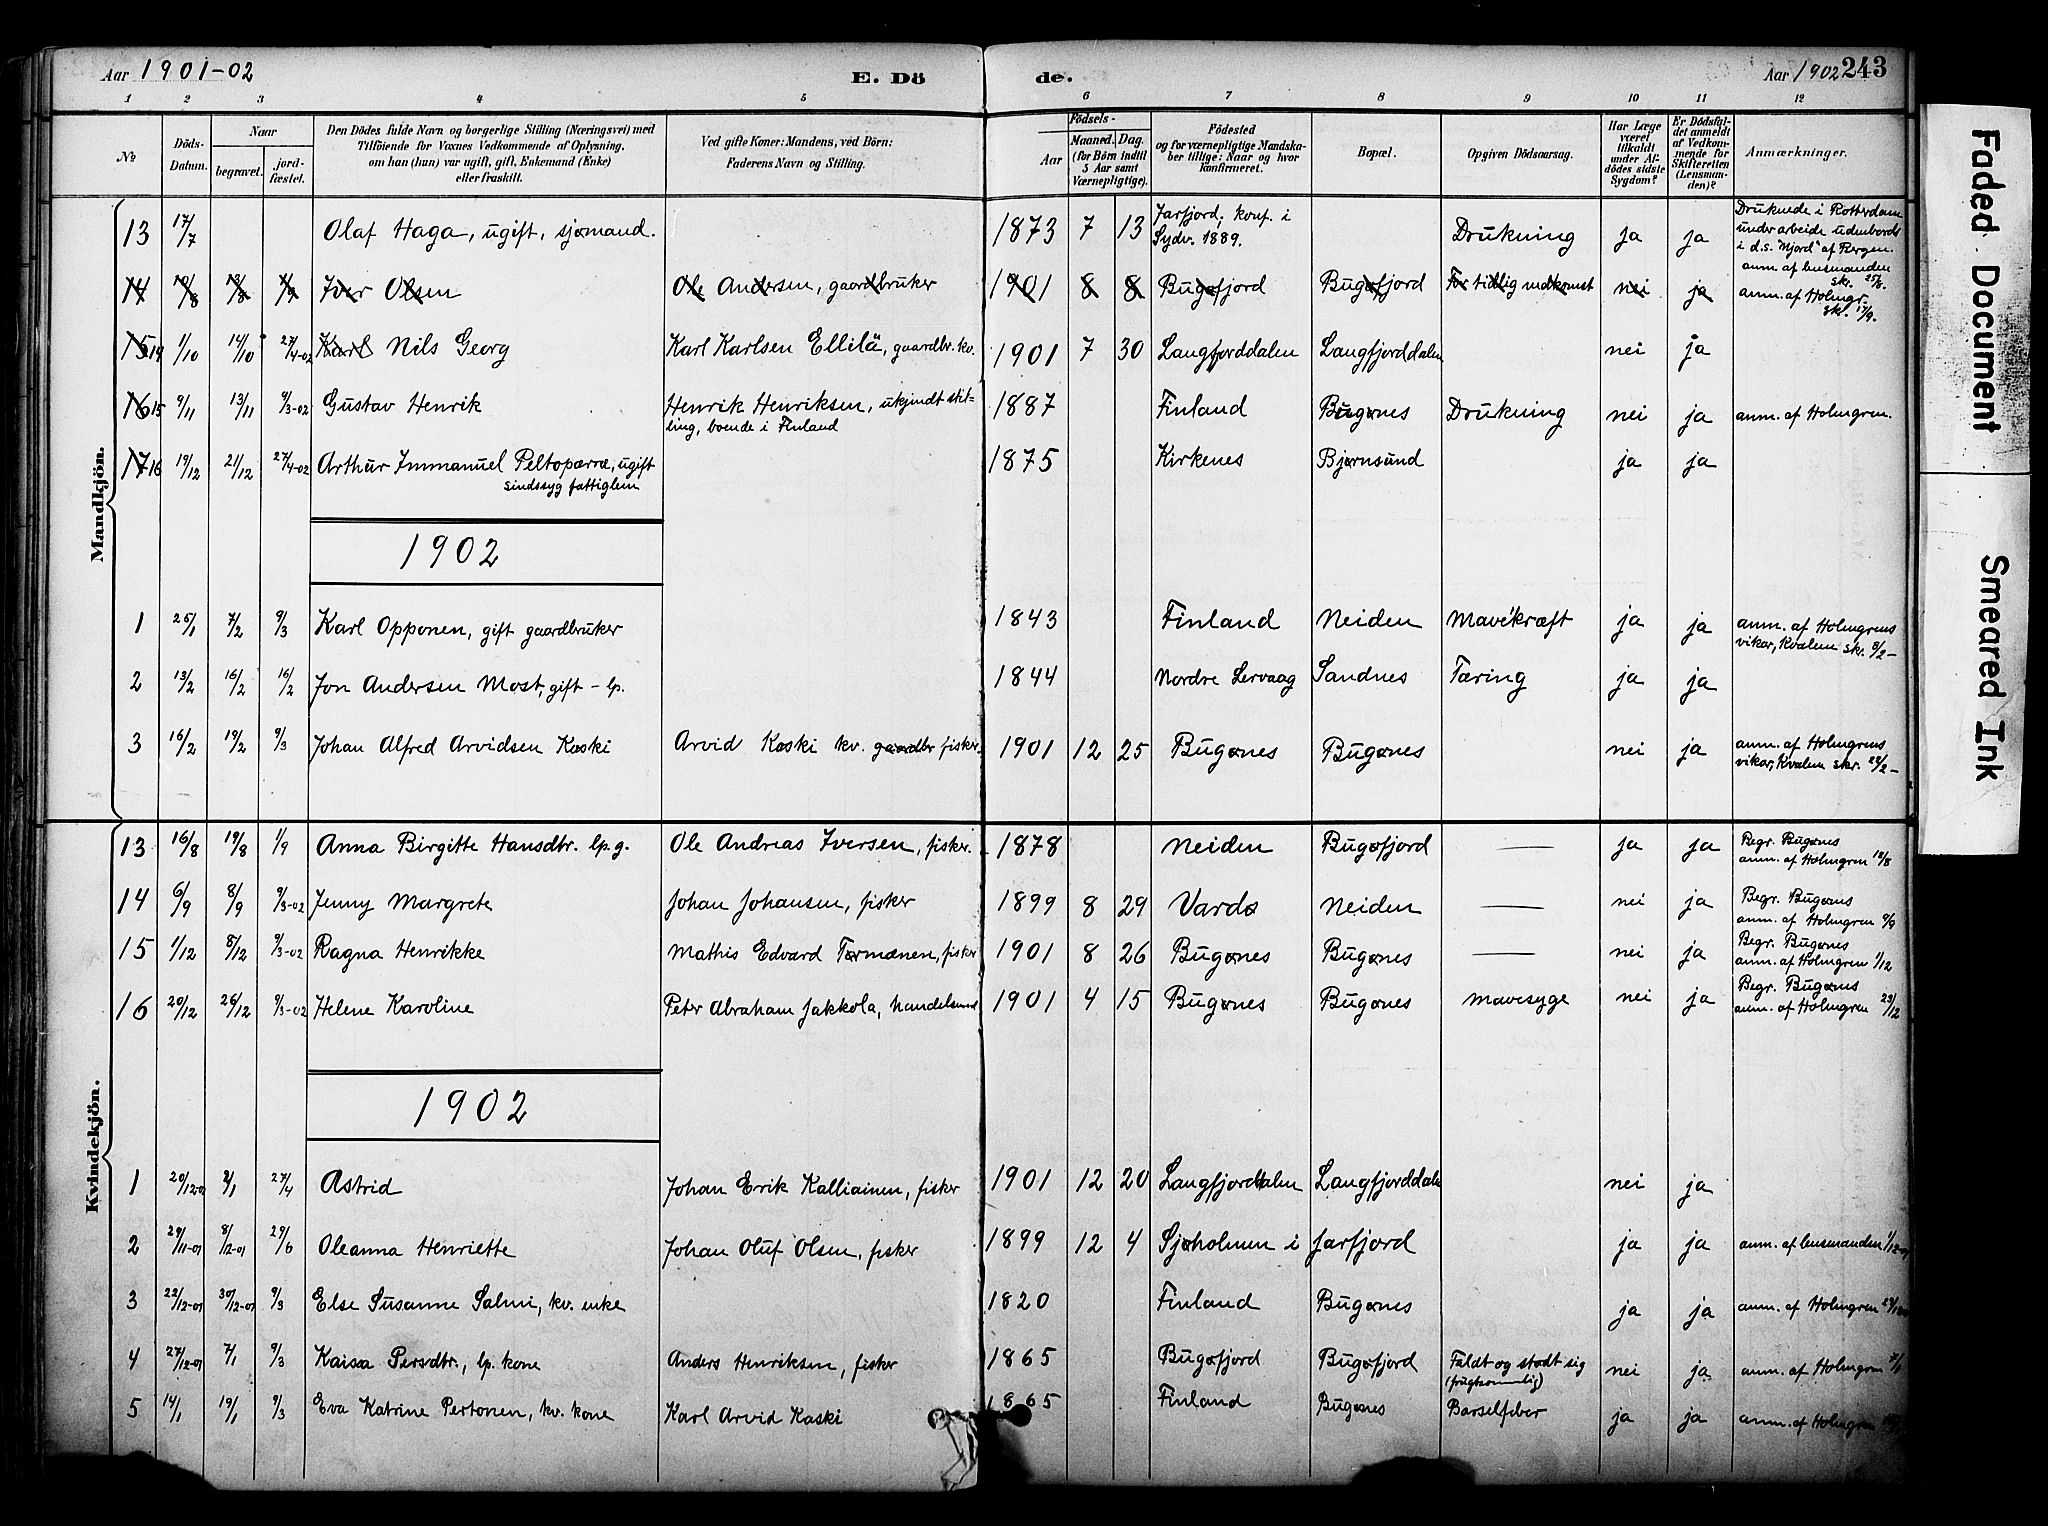 Aar 1901-02 E. Dö de. Aar 1902 243
1 2 3 4 5 6 7 8 9 10 11 12
№
Döds-Datum.
Naar
begravet.
jordfæstet.
Den Dödes fulde Navn og borgerlige Stilling (Næringsvei) med
Tilföiende for Voxnes Vedkommende af Oplysning,
om han (hun) var ugift, gift, Enkemand (Enke)
eller fraskilt.
Ved gifte Koner: Mandens, ved Börn:
Faderens Navn og Stilling.
Födsels-
Aar
Maaned. Dag.
(for Börn indtil
5 Aar samt
Værnepligtige).
Födested
og for værnepligtige Mandska-
ber tillige: Naar og hvor
konfirmeret.
Bopæl.
Opgiven Dödsaarsag.
Har Læge
været
tilkaldt
under Af-
dödes sidste
Sygdom?
Er Dödsfal-
det anmeldt
af Vedkom-
mende for
Skifteretten
(Lensman-
den)?
Anmærkninger.
Mandkjön.
13 17/7 Olaf Haga, ugift, sjømand. 1873 7 13 Jarfjord, konf. i Sydv. 1889. Drukning ja ja Druknede i Rotterdam under arbeide udenbords i d.s. "Njord" af Bergen. anm. af lensmanden sk. 25/8.
14 10/8 13/8 1/9 Iver Olsen Ole Andersen, gaardbruker 1901 8 8 Bugøfjord Bugøfjord For tidlig nedkomst nei ja anm. af Holmgr. sk. 17/9.
15 19 1/10 14/10 27/4-02 Karl Nils Georg Karl Karlsen Ellilä, gaardbr. kv. 1901 7 30 Langfjorddalen Langfjorddalen nei ja
16 15 9/11 13/11 9/3-02 Gustav Henrik Henrik Henriksen, ukjendt stilling, boende i Finland 1887 Finland Bugønes Drukning nei ja anm. af Holmgren.
17 16 19/12 21/12 27/4-02 Arthur Immanuel Peltoperræ, ugift sindssyg fattiglem 1875 Kirkenes Bjørnsund ja ja
1902
1 25/1 7/2 9/3 Karl Opponen, gift gaardbruker 1843 Finland Neiden Mavekræft ja ja anm. af Holmgrens vikar, Kvalem skr. 8/2-
2 13/2 16/2 16/2 Jon Andersen Most, gift - lp. 1844 Nordre Lervaag Sandnes Tæring ja ja
3 16/2 19/2 9/3 Johan Alfred Arvidsen Koski Arvid Koski kv. gaardbr fisker. 1901 12 25 Bugønes Bugønes nei ja anm. af Holmgrens vikar, Kvalem skr. 22/2-
Kvindekjön.
13 16/8 19/8 1/9 Anna Birgitte Hansdtr. lp. g. Ole Andreas Iversen, fisker. 1878 Neiden Bugøfjord — ja ja Begr. Bugønes anm. af Holmgren 19/8
14 6/9 8/9 9/3-02 Jenny Margrete Johan Johansen, fisker 1899 8 29 Vardø Neiden — nei ja Begr. Bugønes anm. af Holmgren 9/9
15 1/12 8/12 9/3-02 Ragna Henrikke Mathis Edvard Tørmænen, fisker 1901 8 26 Bugønes Bugønes — nei ja Begr. Bugønes anm. af Holmgren 1/12
16 20/12 26/12 9/3-02 Helene Karoline Peter Abraham Jakkola, handelsmd 1901 4 15 Bugønes Bugønes mavesyge nei ja Begr. Bugønes anm. af Holmgren 23/12
1902
1 20/12-01 2/1 27/4 Astrid Johan Erik Kalliainen, fisker 1901 12 20 Langfjorddalen Langfjorddalen nei ja
2 29/11-01 8/12-01 29/6 Oleanna Henriette Johan Oluf Olsen, fisker 1899 12 4 Sjøholmen i Jarfjord ja ja anm. af lensmanden 1/12-01
3 22/12-01 30/12-01 9/3 Else Susanne Salmi, kv. enke 1820 Finland Bugønes ja ja anm. af Holmgren
4 27/12-01 7/1 9/3 Kaisa Persdtr., lp. kone Anders Henriksen, fisker 1865 Bugøfjord Bugøfjord Faldt og stødt sig (frugtsommelig) nei ja anm. af Holmgren
5 14/1 19/1 9/3 Eva Katrine Pertonen, kv. kone Karl Arvid Koski 1865 Finland Bugønes Barselfeber ja ja anm. af Holmgren
Faded Document
Smeared Ink